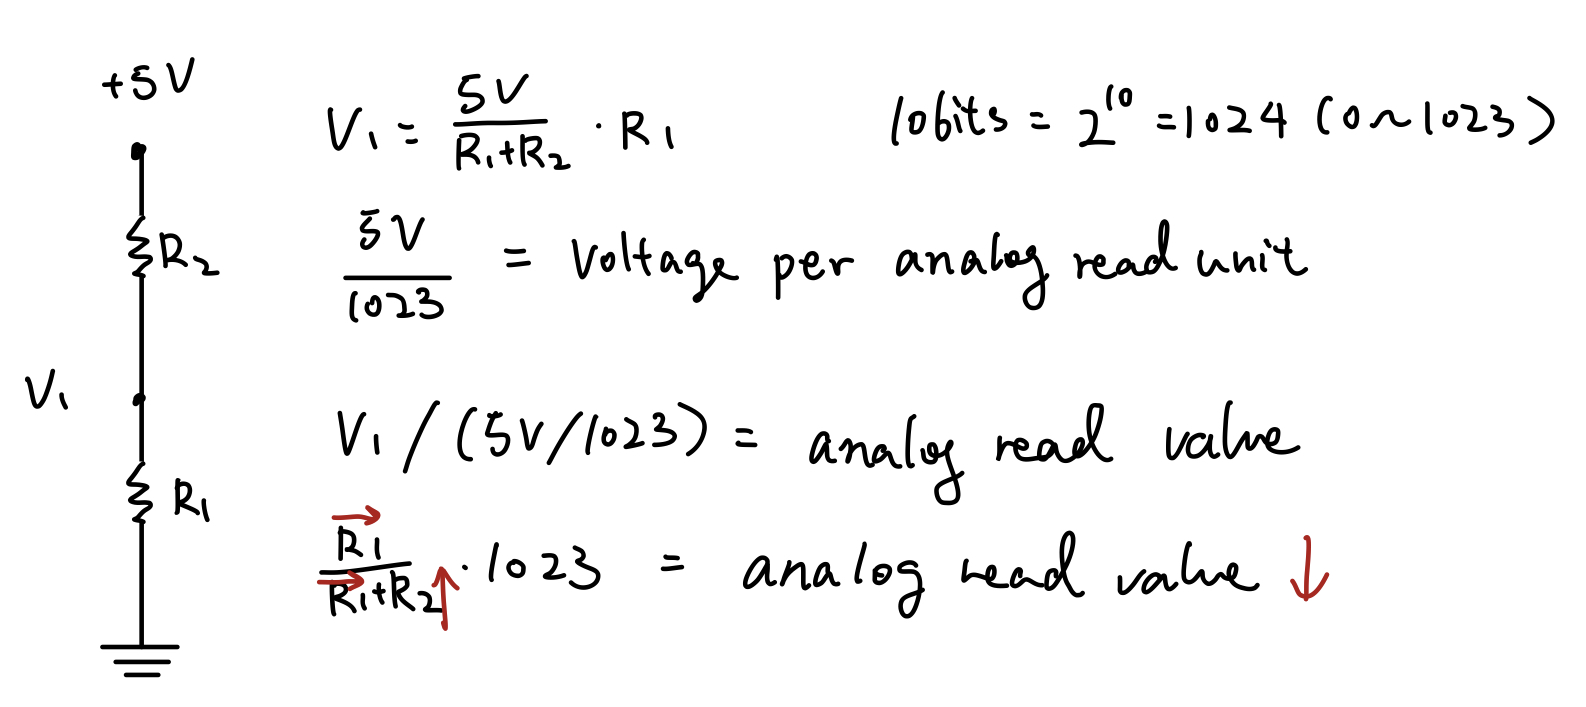 +5V
V₁ = 5V/(R₁+R₂) · R₁
10bits = 2¹⁰ = 1024 (0~1023)
R₂
5V/1023 = Voltage per analog read unit
V₁
V₁ / (5V/1023) = analog read value
R₁
R₁/(R₁+R₂) · 1023 = analog read value ↓